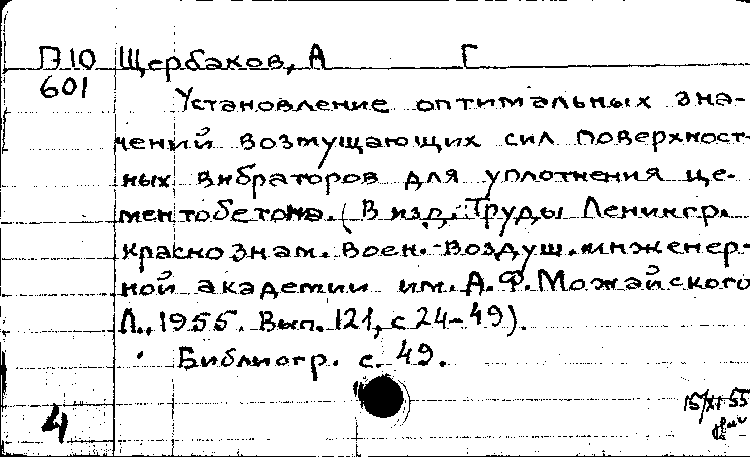 П10 Щербаков, А Г
601
Установление оптимальных зна-
чений возмущающих сил поверхност-
ных вибраторов для уплотнения це-
ментобетона. (В изд.: Труды Ленингр.
краснознам. воен.-воздуш. инженер-
ной академии им. А.Ф. Можайского
Л., 1955. Вып. 121, с 24-49).
Библиогр. с. 49.
4
15/XI 55